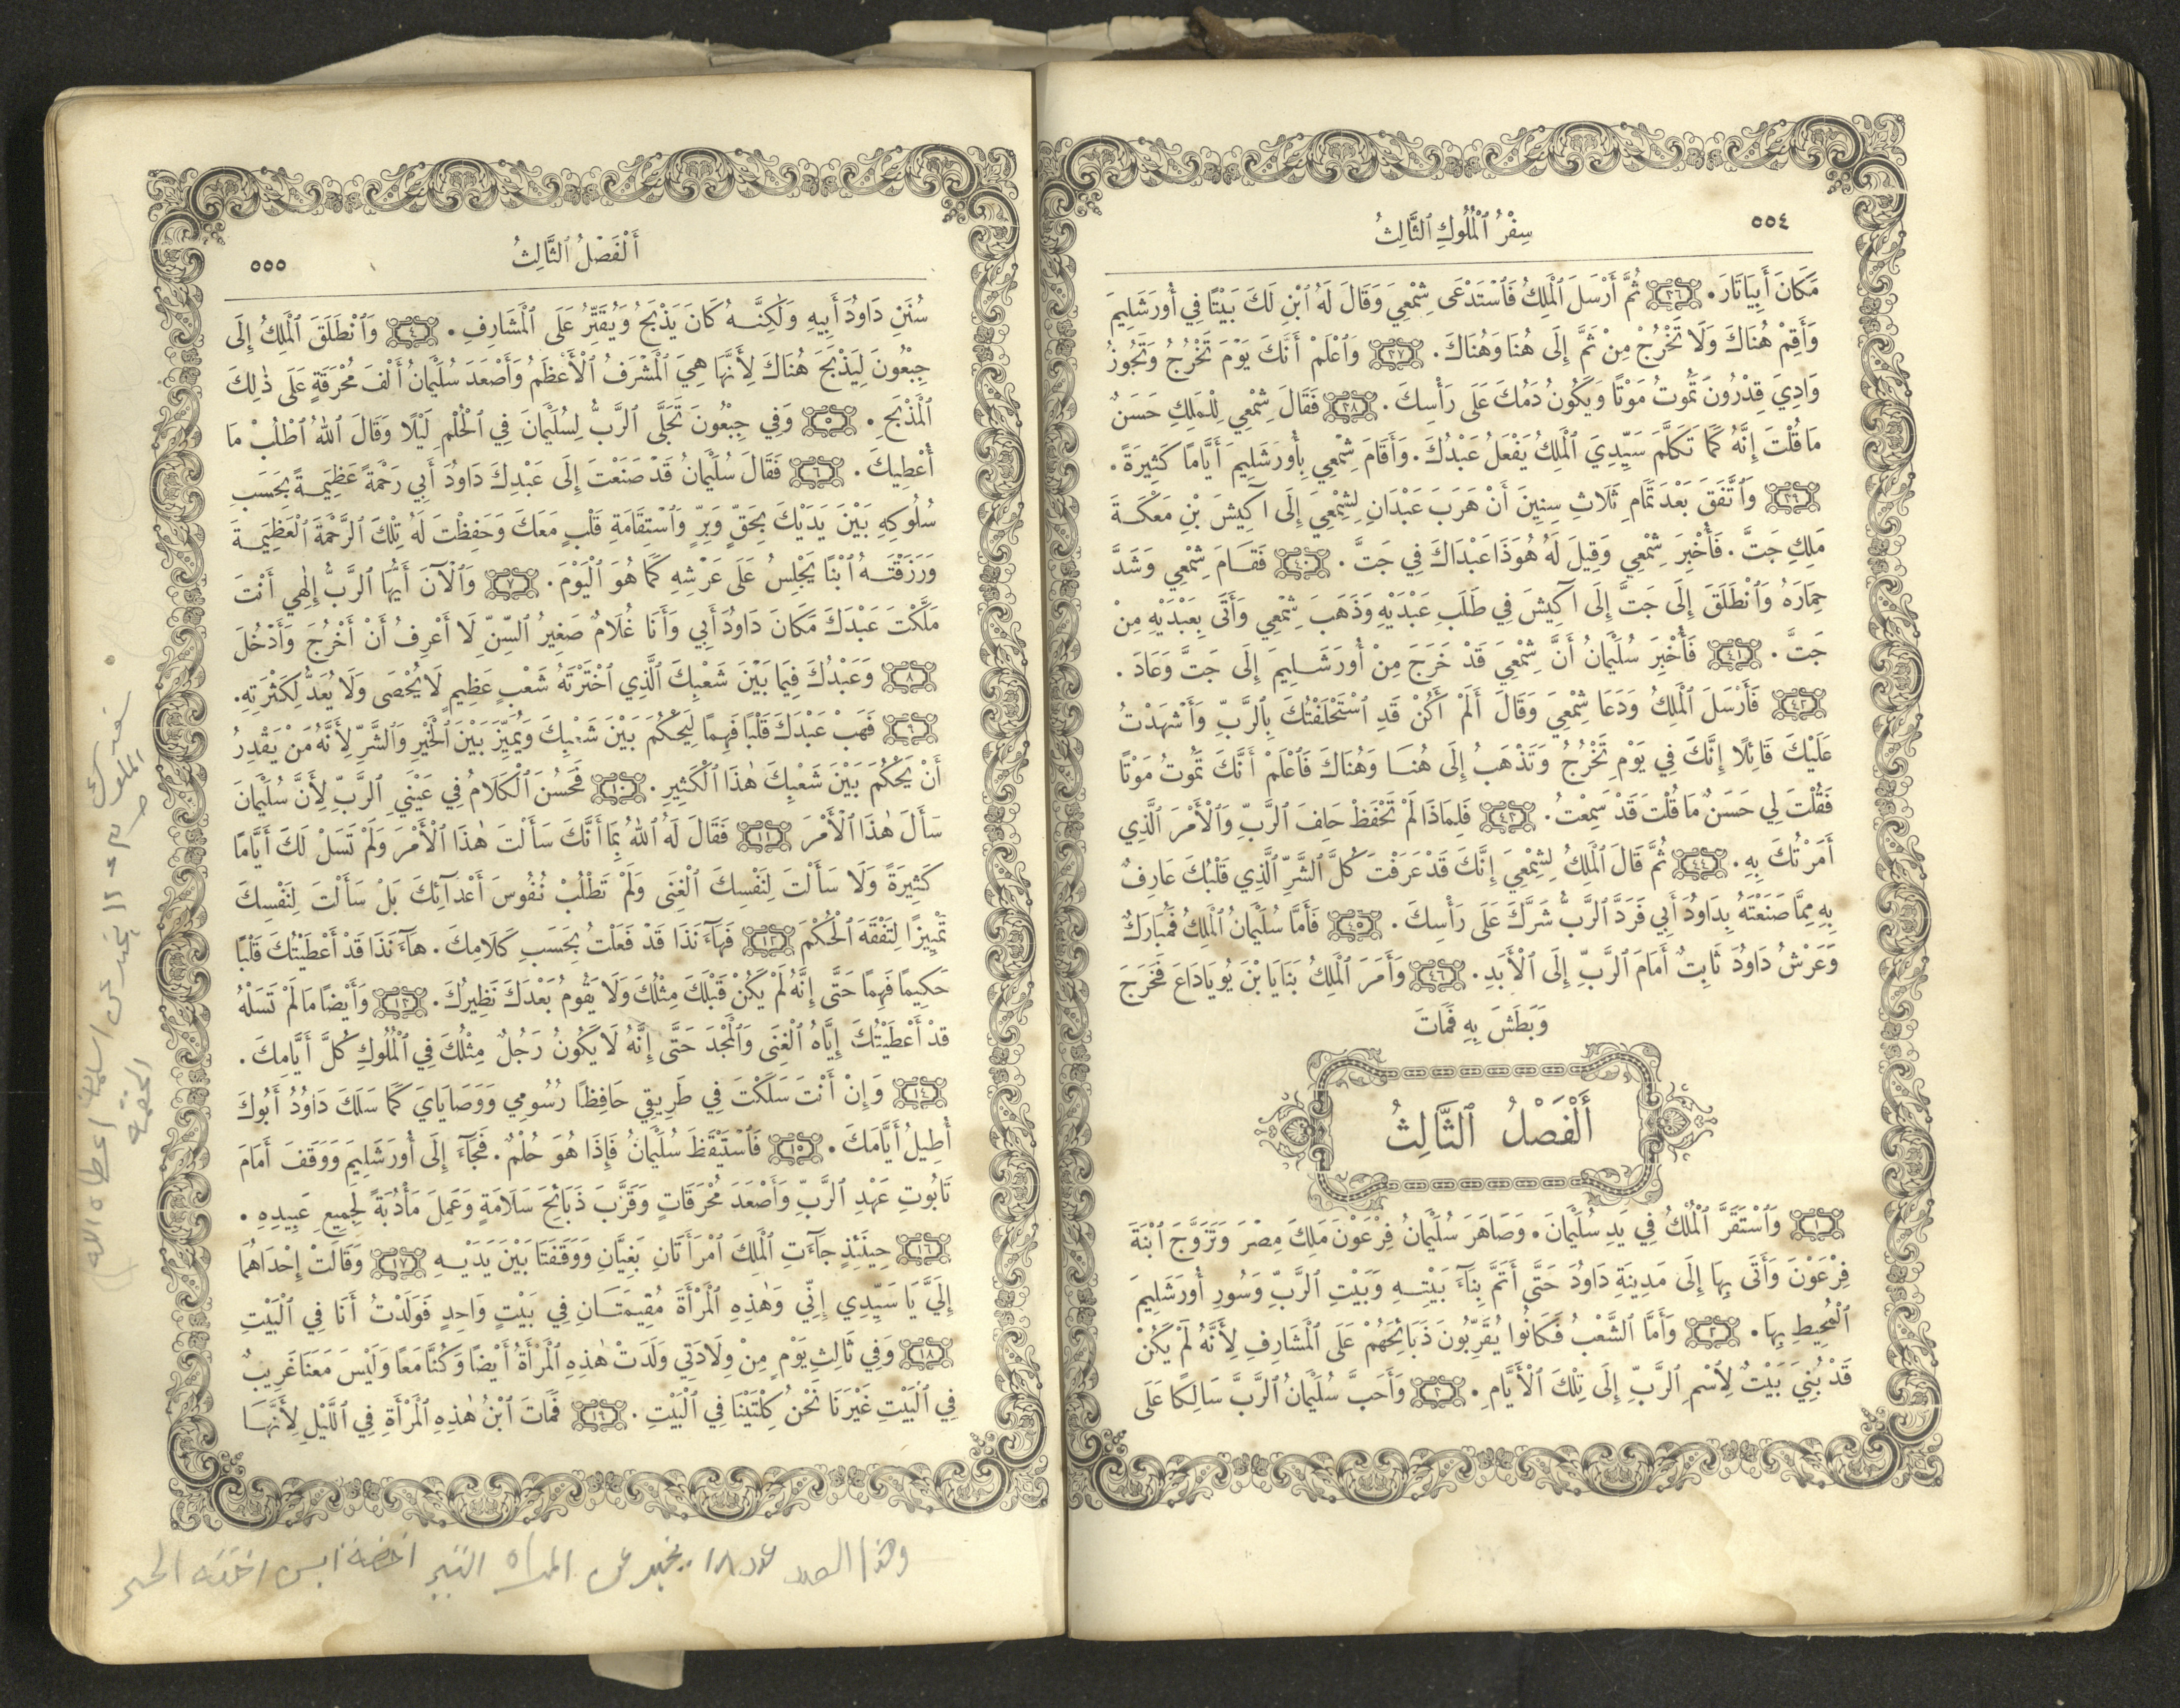 ٥٥٤
سِفْرُ ٱلْمُلُوكِ ٱلثَّالِثُ
مَكَانَ أَبِيَاتَارَ. ٣٦ ثُمَّ أَرْسَلَ ٱلْمَلِكُ فَٱسْتَدْعَى شِمْعِيَ وَقَالَ لَهُ ٱبْنِ لَكَ بَيْتًا فِي أُورَشَلِيمَ
وَأَقِمْ هُنَاكَ وَلَا تَخْرُجْ مِنْ ثَمَّ إِلَى هُنَا وَهُنَاكَ. ٣٧ وَٱعْلَمْ أَنَّكَ يَوْمَ تَخْرُجُ وَتَجُوزُ
وَادِيَ قِدْرُونَ تَمُوتُ مَوْتًا وَيَكُونُ دَمُكَ عَلَى رَأْسِكَ. ٣٨ فَقَالَ شِمْعِي لِلْمَلِكِ حَسَنٌ
مَا قُلْتَ إِنَّهُ كَمَا تَكَلَّمَ سَيِّدِيَ ٱلْمَلِكُ يَفْعَلُ عَبْدُكَ. وَأَقَامَ شِمْعِي بِأُورَشَلِيمَ أَيَّامًا كَثِيرَةً.
٣٩ وَٱتَّفَقَ بَعْدَ تَمَامِ ثَلَاثِ سِنِينَ أَنْ هَرَبَ عَبْدَانِ لِشِمْعِيَ إِلَى آكِيشَ بْنِ مَعْكَةَ
مَلِكِ جَتَّ. فَأُخْبِرَ شِمْعِي وَقِيلَ لَهُ هُوَذَا عَبْدَاكَ فِي جَتَّ. ٤٠ فَقَامَ شِمْعِي وَشَدَّ
حِمَارَهُ وَٱنْطَلَقَ إِلَى جَتَّ إِلَى آكِيشَ فِي طَلَبِ عَبْدَيْهِ وَذَهَبَ شِمْعِي وَأَتَى بِعَبْدَيْهِ مِنْ
جَتَّ. ٤١ فَأُخْبِرَ سُلَيْمَانُ أَنَّ شِمْعِيَ قَدْ خَرَجَ مِنْ أُورَشَلِيمَ إِلَى جَتَّ وَعَادَ.
٤٢ فَأَرْسَلَ ٱلْمَلِكُ وَدَعَا شِمْعِيَ وَقَالَ أَلَمْ أَكُنْ قَدِ ٱسْتَحْلَفْتُكَ بِٱلرَّبِّ وَأَشْهَدْتُ
عَلَيْكَ قَائِلًا إِنَّكَ فِي يَوْمِ تَخْرُجُ وَتَذْهَبُ إِلَى هُنَا وَهُنَاكَ فَٱعْلَمْ أَنَّكَ تَمُوتُ مَوْتًا
فَقُلْتَ لِي حَسَنٌ مَا قُلْتَ قَدْ سَمِعْتُ. ٤٣ فَلِمَاذَا لَمْ تَحْفَظْ حَلِفَ ٱلرَّبِّ وَٱلْأَمْرَ ٱلَّذِي
أَمَرْتُكَ بِهِ. ٤٤ ثُمَّ قَالَ ٱلْمَلِكُ لِشِمْعِيَ إِنَّكَ قَدْ عَرَفْتَ كُلَّ ٱلشَّرِّ ٱلَّذِي قَلْبُكَ عَارِفٌ
بِهِ مِمَّا صَنَعْتَهُ بِدَاوُدَ أَبِي فَرَدَّ ٱلرَّبُّ شَرَّكَ عَلَى رَأْسِكَ. ٤٥ فَأَمَّا سُلَيْمَانُ ٱلْمَلِكُ فَمُبَارَكٌ
وَعَرْشُ دَاوُدَ ثَابِتٌ أَمَامَ ٱلرَّبِّ إِلَى ٱلْأَبَدِ. ٤٦ وَأَمَرَ ٱلْمَلِكُ بَنَايَا بْنَ يُويَادَاعَ فَخَرَجَ
وَبَطَشَ بِهِ فَمَاتَ
أَلْفَصْلُ ٱلثَّالِثُ
١ وَٱسْتَقَرَّ ٱلْمُلْكُ فِي يَدِ سُلَيْمَانَ. وَصَاهَرَ سُلَيْمَانُ فِرْعَوْنَ مَلِكَ مِصْرَ وَتَزَوَّجَ ٱبْنَةَ
فِرْعَوْنَ وَأَتَى بِهَا إِلَى مَدِينَةِ دَاوُدَ حَتَّى أَتَمَّ بِنَآءَ بَيْتِهِ وَبَيْتِ ٱلرَّبِّ وَسُورِ أُورَشَلِيمَ
ٱلْمُحِيطِ بِهَا. ٢ وَأَمَّا ٱلشَّعْبُ فَكَانُوا يُقَرِّبُونَ ذَبَائِحَهُمْ عَلَى ٱلْمَشَارِفِ لِأَنَّهُ لَمْ يَكُنْ
قَدْ بُنِيَ بَيْتٌ لِٱسْمِ ٱلرَّبِّ إِلَى تِلْكَ ٱلْأَيَّامِ. ٣ وَأَحَبَّ سُلَيْمَانُ ٱلرَّبَّ سَالِكًا عَلَى
أَلْفَصْلُ ٱلثَّالِثُ
٥٥٥
سُنَنِ دَاوُدَ أَبِيهِ وَلٰكِنَّهُ كَانَ يَذْبَحُ وَيُقَتِّرُ عَلَى ٱلْمَشَارِفِ. ٤ وَٱنْطَلَقَ ٱلْمَلِكُ إِلَى
جِبْعُونَ لِيَذْبَحَ هُنَاكَ لِأَنَّهَا هِيَ ٱلْمَشْرَفُ ٱلْأَعْظَمُ وَأَصْعَدَ سُلَيْمَانُ أَلْفَ مُحْرَقَةٍ عَلَى ذٰلِكَ
ٱلْمَذْبَحِ. ٥ وَفِي جِبْعُونَ تَجَلَّى ٱلرَّبُّ لِسُلَيْمَانَ فِي ٱلْحُلْمِ لَيْلًا وَقَالَ ٱللهُ ٱطْلُبْ مَا
أُعْطِيكَ. ٦ فَقَالَ سُلَيْمَانُ قَدْ صَنَعْتَ إِلَى عَبْدِكَ دَاوُدَ أَبِي رَحْمَةً عَظِيمَةً بِحَسَبِ
سُلُوكِهِ بَيْنَ يَدَيْكَ بِحَقٍّ وَبِرٍّ وَٱسْتِقَامَةِ قَلْبٍ مَعَكَ وَحَفِظْتَ لَهُ تِلْكَ ٱلرَّحْمَةَ ٱلْعَظِيمَةَ
وَرَزَقْتَهُ ٱبْنًا يَجْلِسُ عَلَى عَرْشِهِ كَمَا هُوَ ٱلْيَوْمَ. ٧ وَٱلْآنَ أَيُّهَا ٱلرَّبُّ إِلٰهِي أَنْتَ
مَلَّكْتَ عَبْدَكَ مَكَانَ دَاوُدَ أَبِي وَأَنَا غُلَامٌ صَغِيرُ ٱلسِّنِّ لَا أَعْرِفُ أَنْ أَخْرُجَ وَأَدْخُلَ
٨ وَعَبْدُكَ فِيمَا بَيْنَ شَعْبِكَ ٱلَّذِي ٱخْتَرْتَهُ شَعْبٍ عَظِيمٍ لَا يُحْصَى وَلَا يُعَدُّ لِكَثْرَتِهِ.
٩ فَهَبْ عَبْدَكَ قَلْبًا فَهِمًا لِيَحْكُمَ بَيْنَ شَعْبِكَ وَيُمَيِّزَ بَيْنَ ٱلْخَيْرِ وَٱلشَّرِّ لِأَنَّهُ مَنْ يَقْدِرُ
أَنْ يَحْكُمَ بَيْنَ شَعْبِكَ هٰذَا ٱلْكَثِيرِ. ١٠ فَحَسُنَ ٱلْكَلَامُ فِي عَيْنَيِ ٱلرَّبِّ لِأَنَّ سُلَيْمَانَ
سَأَلَ هٰذَا ٱلْأَمْرَ ١١ فَقَالَ لَهُ ٱللهُ بِمَا أَنَّكَ سَأَلْتَ هٰذَا ٱلْأَمْرَ وَلَمْ تَسَلْ لَكَ أَيَّامًا
كَثِيرَةً وَلَا سَأَلْتَ لِنَفْسِكَ ٱلْغِنَى وَلَمْ تَطْلُبْ نُفُوسَ أَعْدَآئِكَ بَلْ سَأَلْتَ لِنَفْسِكَ
تَمْيِيزًا لِتَفْقَهَ ٱلْحُكْمَ ١٢ فَهَآءَنَذَا قَدْ فَعَلْتُ بِحَسَبِ كَلَامِكَ. هَآءَنَذَا قَدْ أَعْطَيْتُكَ قَلْبًا
حَكِيمًا فَهِمًا حَتَّى إِنَّهُ لَمْ يَكُنْ قَبْلَكَ مِثْلُكَ وَلَا يَقُومُ بَعْدَكَ نَظِيرُكَ. ١٣ وَأَيْضًا مَا لَمْ تَسَلْهُ
قَدْ أَعْطَيْتُكَ إِيَّاهُ ٱلْغِنَى وَٱلْمَجْدَ حَتَّى إِنَّهُ لَا يَكُونُ رَجُلٌ مِثْلُكَ فِي ٱلْمُلُوكِ كُلَّ أَيَّامِكَ.
١٤ وَإِنْ أَنْتَ سَلَكْتَ فِي طَرِيقِي حَافِظًا رُسُومِي وَوَصَايَايَ كَمَا سَلَكَ دَاوُدُ أَبُوكَ
أُطِيلُ أَيَّامَكَ. ١٥ فَٱسْتَيْقَظَ سُلَيْمَانُ فَإِذَا هُوَ حُلْمٌ. فَجَآءَ إِلَى أُورَشَلِيمَ وَوَقَفَ أَمَامَ
تَابُوتِ عَهْدِ ٱلرَّبِّ وَأَصْعَدَ مُحْرَقَاتٍ وَقَرَّبَ ذَبَائِحَ سَلَامَةٍ وَعَمِلَ مَأْدُبَةً لِجَمِيعِ عَبِيدِهِ.
١٦ حِينَئِذٍ جَآءَتِ ٱلْمَلِكَ ٱمْرَأَتَانِ بَغِيَّانِ وَوَقَفَتَا بَيْنَ يَدَيْهِ ١٧ وَقَالَتْ إِحْدَاهُمَا
إِلَيَّ يَا سَيِّدِي إِنِّي وَهٰذِهِ ٱلْمَرْأَةَ مُقِيمَتَانِ فِي بَيْتٍ وَاحِدٍ فَوَلَدْتُ أَنَا فِي ٱلْبَيْتِ
١٨ وَفِي ثَالِثِ يَوْمٍ مِنْ وِلَادَتِي وَلَدَتْ هٰذِهِ ٱلْمَرْأَةُ أَيْضًا وَكُنَّا مَعًا وَلَيْسَ مَعَنَا غَرِيبٌ
فِي ٱلْبَيْتِ غَيْرَنَا نَحْنُ كِلْتَيْنَا فِي ٱلْبَيْتِ. ١٩ فَمَاتَ ٱبْنُ هٰذِهِ ٱلْمَرْأَةِ فِي ٱللَّيْلِ لِأَنَّهَا
وهذا العدد عدد ١٨ يخبر عن المراه
الملوك
يخبر عن سليمان اعطاه الله
الحكمه